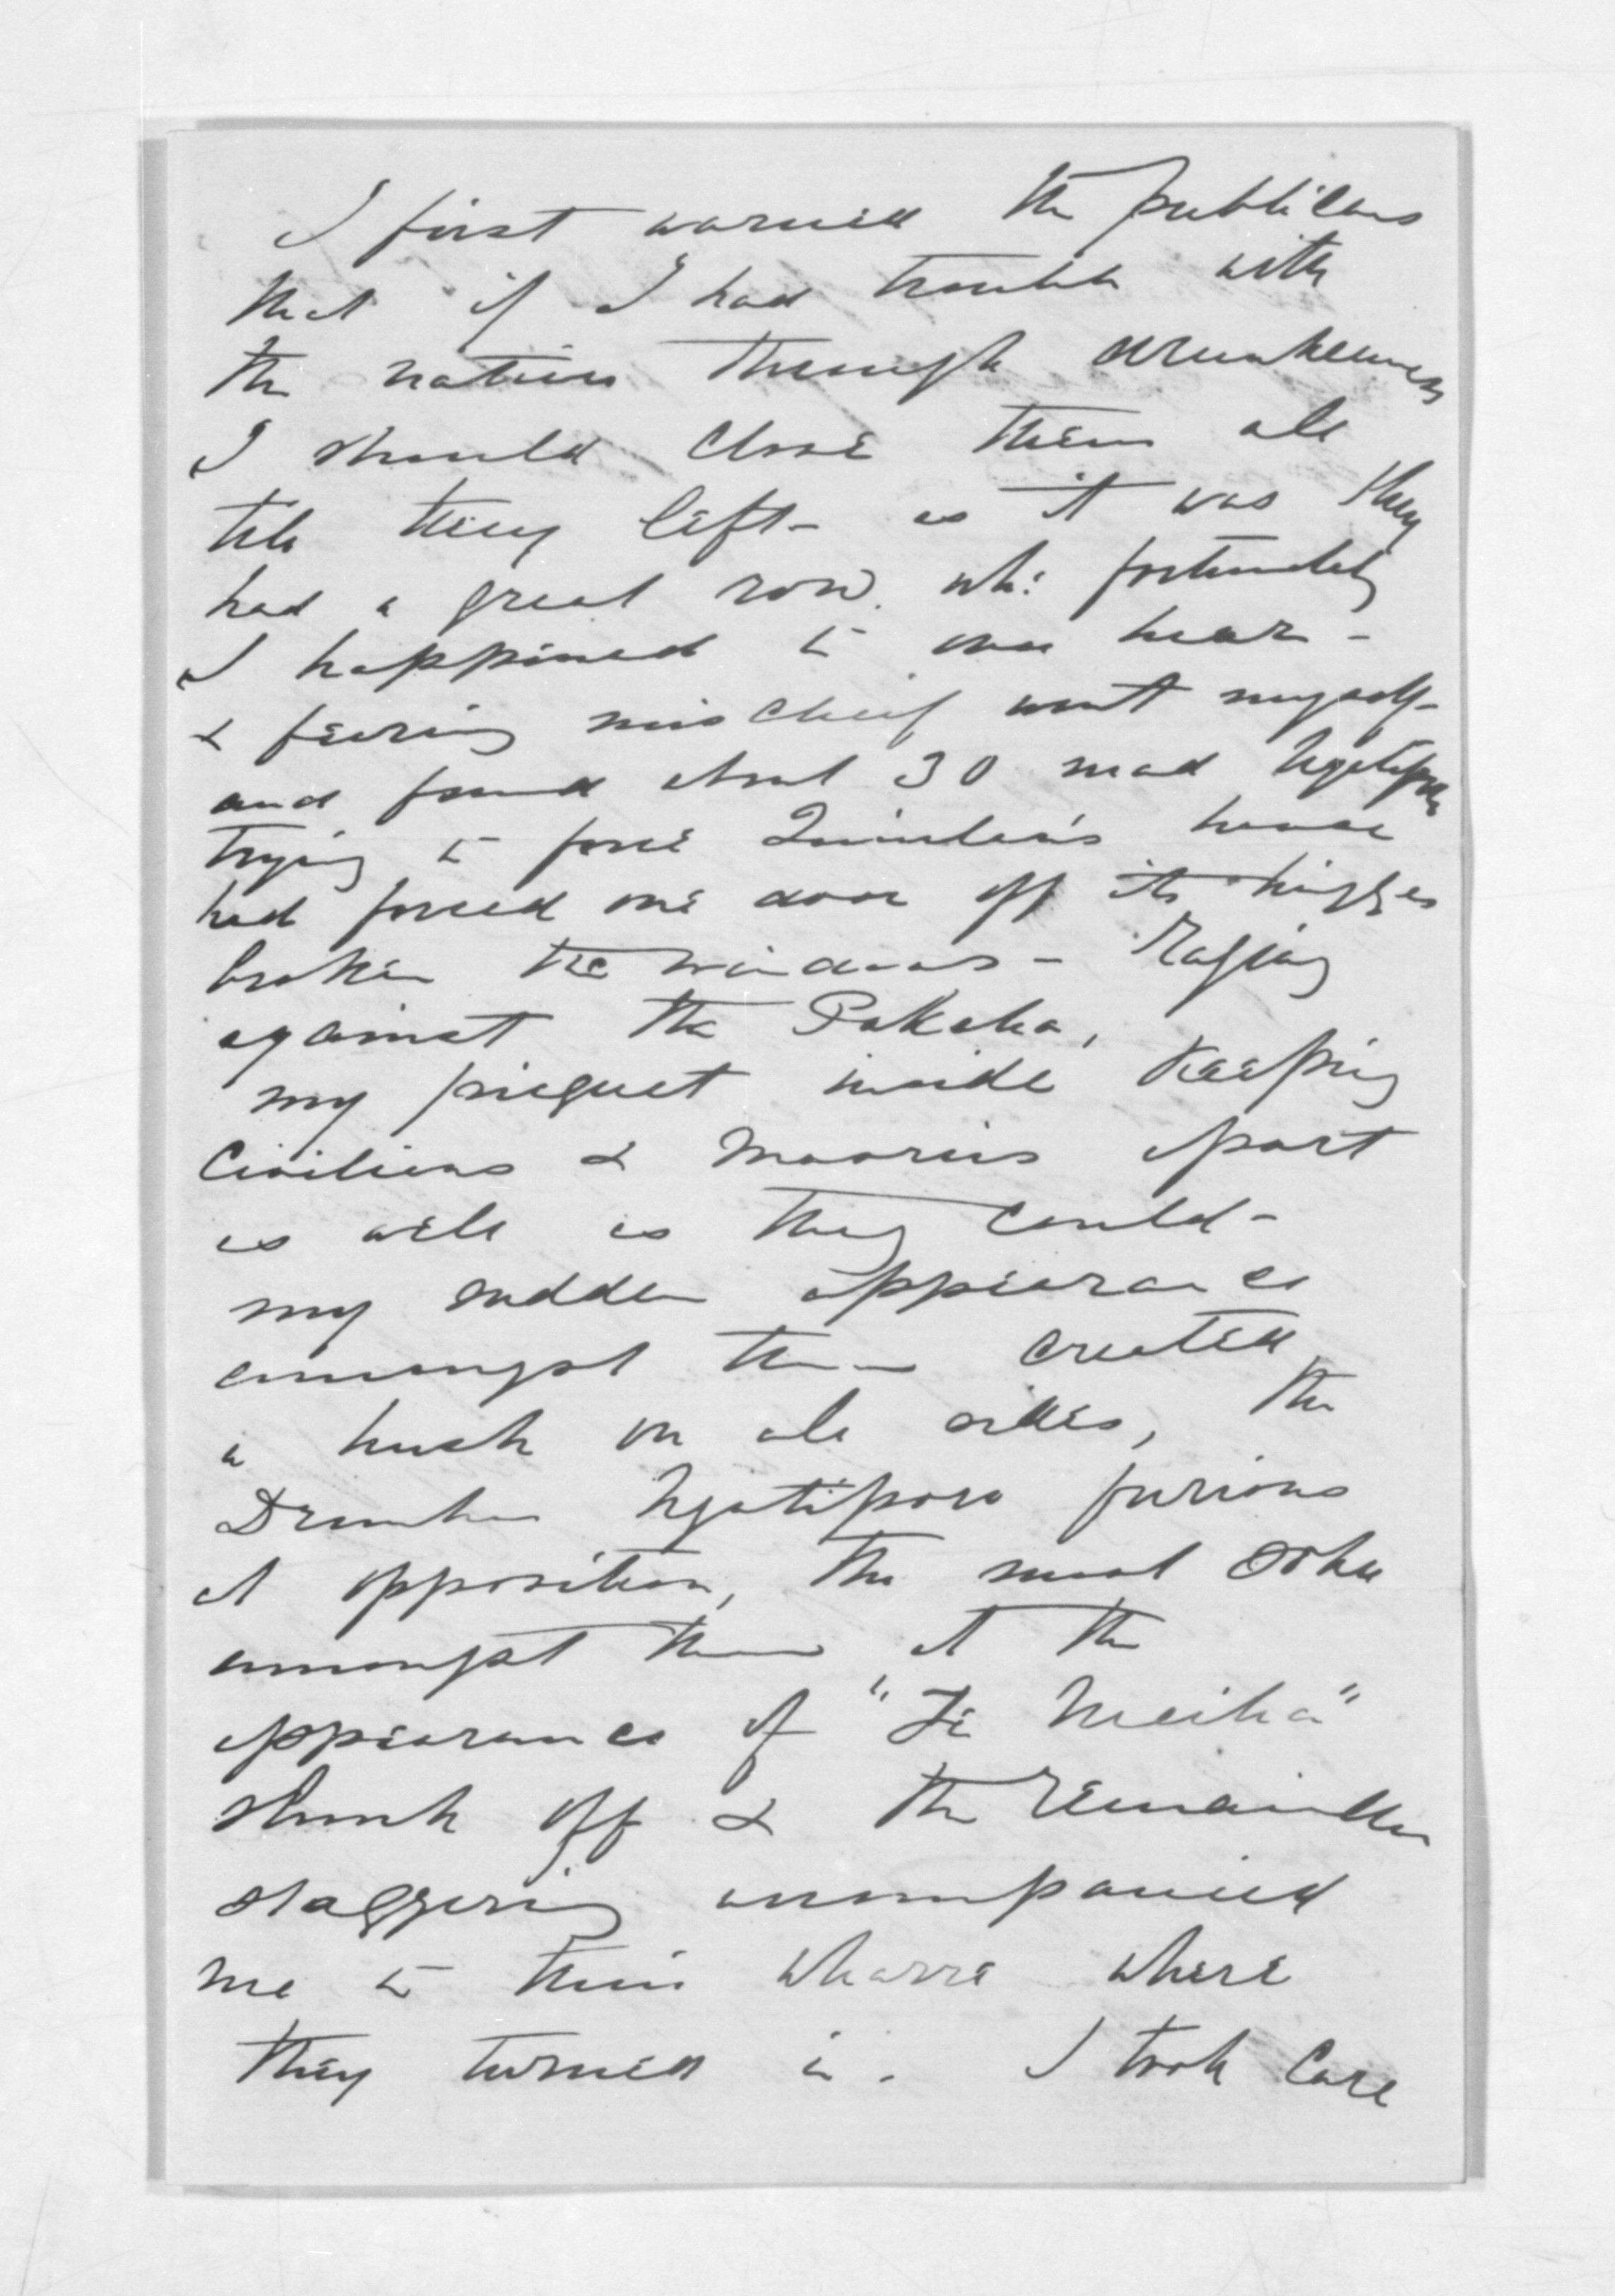 I first warned the publicans
that if I had trouble with
the natives through drunkenness
I should close them all
till they left - as it was they
had a great row. wh: fortunately
I happened to over hear -
& fearing mischief went myself -
and found about 30 mad Ngatiporou
trying to force Quinlan's house
had forced one door off its hinges
broken the windows - Raging
against the Pakeha,
my picquet inside keeping
Civilians & Maoris apart
as well as they could -
my sudden appearance
amongst them created
a hush on all sides, the
Drunken Ngatiporo furious
at opposition, the most sober
amongst them at the
appearance of "Te Meiha"
slunk off & the remainder
staggering accompanied
me to their wharre where
they turned in. I took care